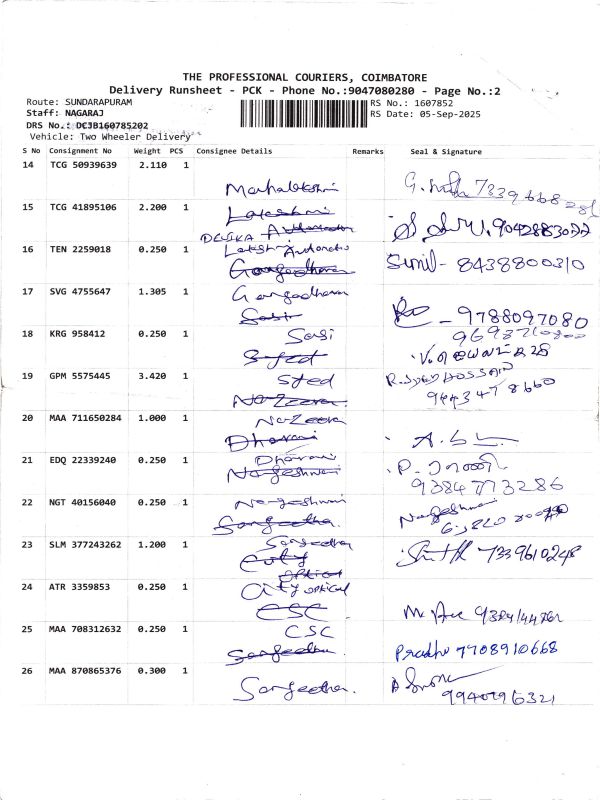 THE PROFESSIONAL COURIERS, COIMBATORE
Delivery Runsheet - PCK - Phone No.:9047080280 - Page No.:2
Route: SUNDARAPURAM
RS No.: 1607852
Staff: NAGARAJ
RS Date: 05-Sep-2025
DRS No.: DCJB160785202
Vehicle: Two Wheeler Delivery
S No Consignment No Weight PCS Consignee Details Remarks Seal & Signature
14 TCG 50939639 2.110 1
Mahalakshmi
15 TCG 41895106 2.200 1
Lakshmi
DEVIKA 9042883022
16 TEN 2259018 0.250 1 Lakshmi
Gangadharan Sunil - 8438800310
17 SVG 4755647 1.305 1 Gangadharan
Sasi 9788097080
18 KRG 958412 0.250 1 Sasi
Syed
19 GPM 5575445 3.420 1 Syed
Nazeera
20 MAA 711650284 1.000 1 Nazeera
Dharani
21 EDQ 22339240 0.250 1 Dharani
Nageshwari 9384773286
22 NGT 40156040 0.250 1 Nageshwari Nageshwari
Sangeetha
23 SLM 377243262 1.200 1 Sangeetha
City 7339610248
optical
24 ATR 3359853 0.250 1 City optical
CSC
25 MAA 708312632 0.250 1 CSC
Sangeetha Pradhu 7708910668
26 MAA 870865376 0.300 1
Sangeetha
9940796321